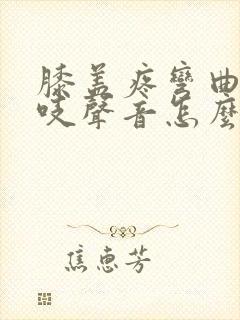 膝盖疼彎曲
吱聲音怎麼
焦惠芳